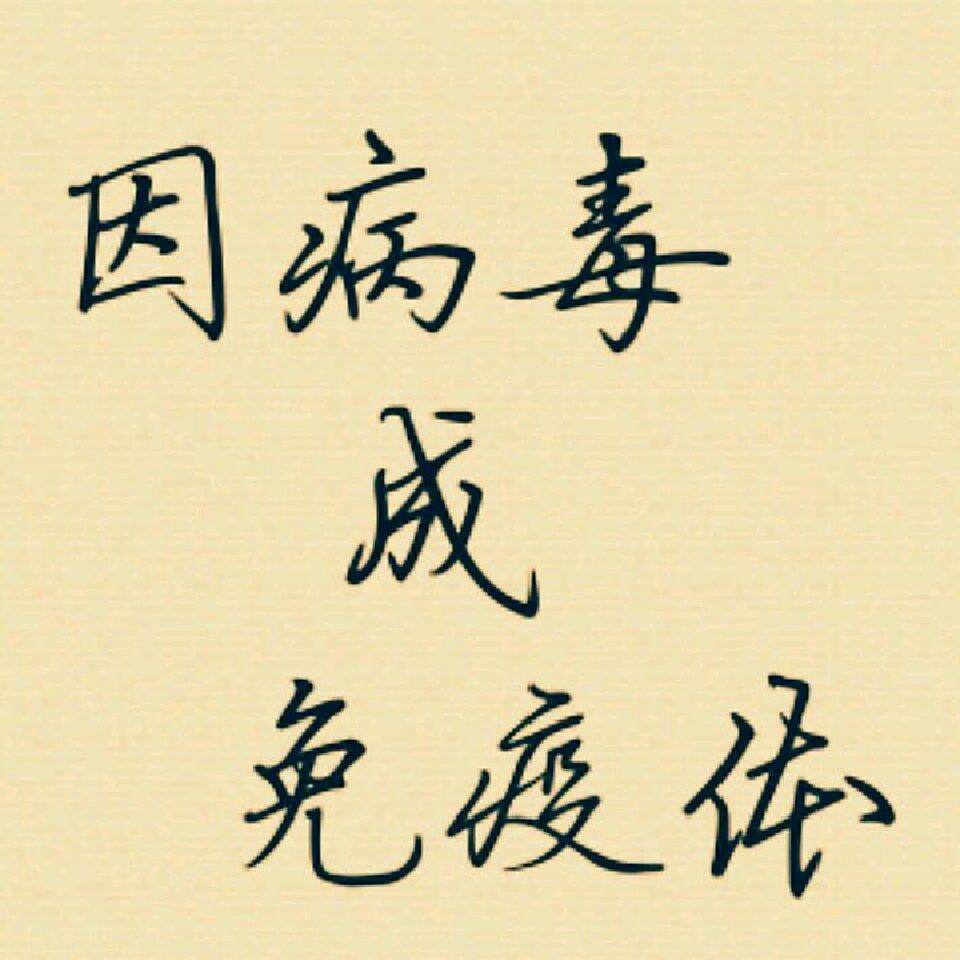 因病毒
成
免疫体